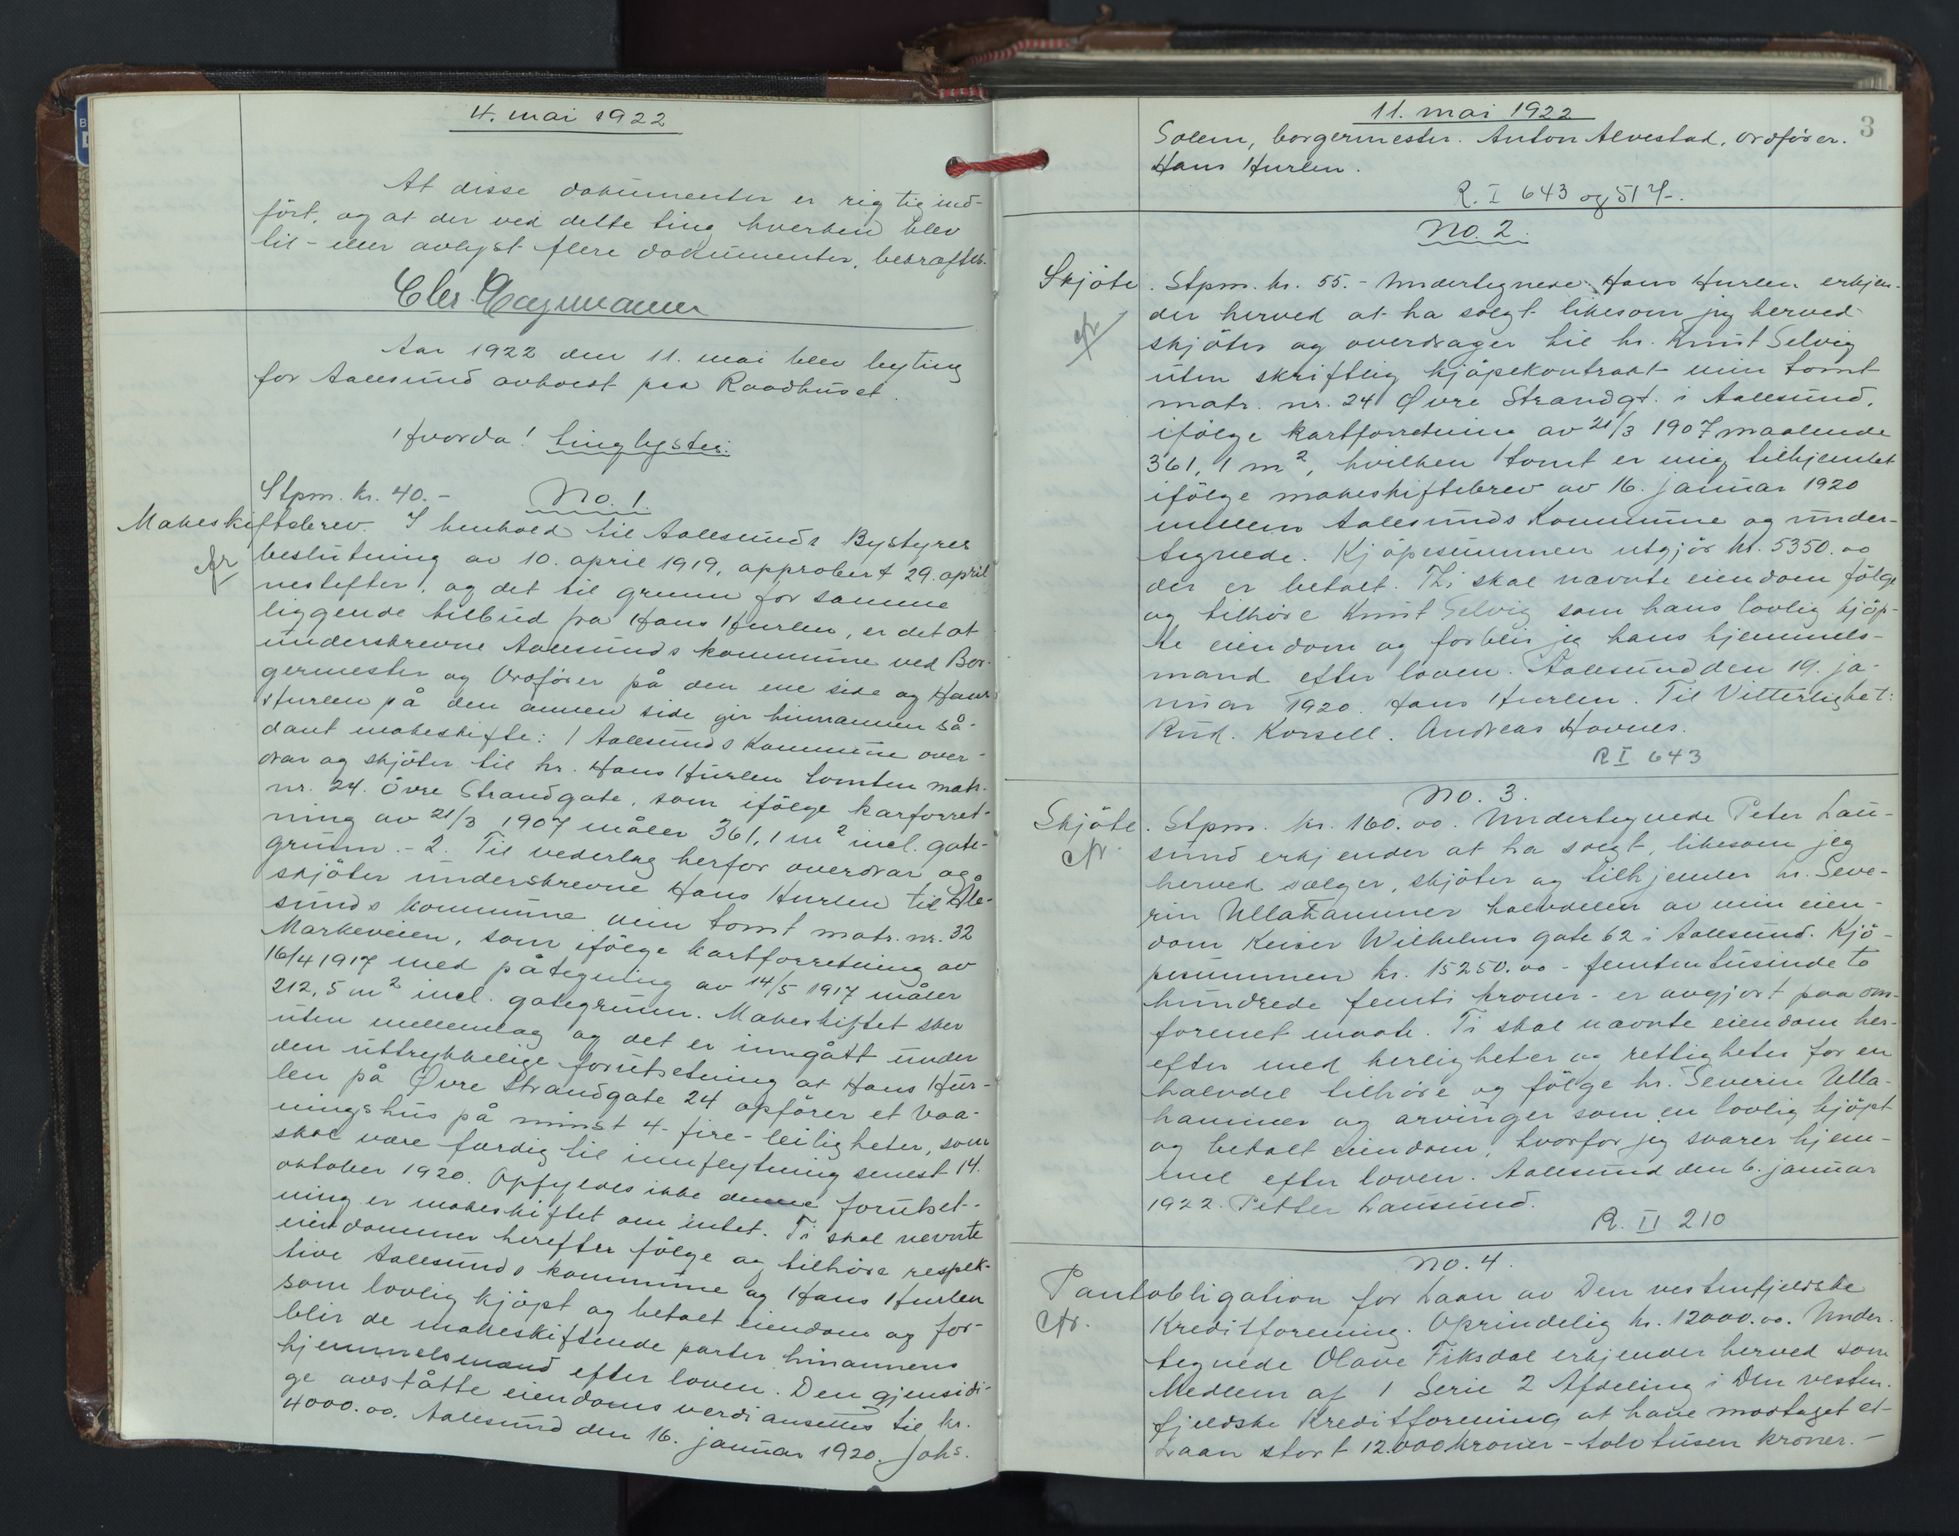 4. mai 1922
At disse dokumenter er rigtig ind-
ført, og at der ved dette ting hverken blev
til- eller avlyst flere dokumenter, bekræftes.
Aar 1922 den 11. mai blev byting
for Aalesund avholdt paa Raadhuset.
Hvorda! tinglystes:
Stpm. kr. 40.- No. 1.
Makeskiftebrev. I henhold til Aalesunds Bystyres
beslutning av 10. april 1919, approbert 29. april
nestefter, og det til grunn for samme
liggende tilbud fra Hans Hurlen, er det at
underskrevne Aalesunds kommune ved Bor-
germester og Ordfører på den ene side og Hans
Hurlen på den annen side gir hinannen så-
dant makeskifte: 1 Aalesunds Kommune over-
drar og skjøter til hr. Hans Hurlen tomten matr.
nr. 24. Övre Strandgate, som ifølge karforret-
ning av 21/3 1907 måler 361,1 m2 incl. gate-
grunn. - 2. Til vederlag herfor overdrar og
skjøter underskrevne Hans Hurlen til Åle-
sunds kommune min tomt matr. nr. 32
Markeveien, som ifølge kartforretning av
16/4 1917 med påtegning av 14/5 1917 måler
212,5 m2 incl. gategrunn. Makeskiftet sker
uten mellemlag og det er inngått under
den uttrykkelige forutsetning at Hans Hur-
len på Øvre Strandgate 24 opfører et vaa-
ningshus på minst 4 - fire - leiligheter, som
skal være færdig til innflytning senest 14.
oktober 1920. Opfyldes ikke denne forutset-
ning er makeskiftet om intet. Ti skal nevnte
eiendommer herefter følge og tilhøre respek-
tive Aalesunds kommune og Hans Hurlen
som lovlig kjøpt og betalt eiendom og for-
blir de makeskiftende parter hinannens
hjemmelsmænd efter loven. Den gjensidi-
ge avståtte eiendoms verdi ansettes til kr.
4000.00. Aalesund den 16. januar 1920. Johs.
11. mai 1922
3
Solem, borgermester. Anton Alvestad, ordfører.
Hans Hurlen.
R. I 643 og 517.
No. 2.
Skjøte. Stpm. kr. 55.- Undertegnede Hans Hurlen erkjen-
der herved at ha solgt likesom jeg herved
skjøter og overdrager til hr. Knut Selvig
uten skriftlig kjøpekontrakt min tomt
matr. nr. 24 Øvre Strandgt. i Aalesund,
ifølge kartforretning av 21/3 1907 maalende
361,1 m2, hvilken tomt er mig tilhjemlet
ifølge makeskiftebrev av 16. januar 1920
mellem Aalesunds Kommune og under-
tegnede. Kjøpesummen utgjør kr. 5350.00
der er betalt. Thi skal nævnte eiendom følge
og tilhøre Knut Selvig som hans lovlig kjøp-
te eiendom og forblir jeg hans hjemmels-
mand efter loven. Aalesund den 19. ja-
nuar 1920. Hans Hurlen. Til Vitterlighet:
Rud. Korsell. Andreas Havnes.
R I 643
No. 3.
Skjøte. Stpm. kr. 160.00. Undertegnede Peter Lau-
sund erkjender at ha solgt, likesom jeg
herved sælger, skjøter og tilhjemler hr. Seve-
rin Ullahammer halvdelen av min eien-
dom Keiser Wilhelms gate 62 i Aalesund. Kjø-
pesummen kr. 15250.00 - femtentusinde to
hundrede femti kroner - er avgjort paa om-
forenet maate. Ti skal nævnte eiendom her-
efter med herligheter og rettigheter for en
halvdel tilhøre og følge hr. Severin Ulla-
hammer og arvinger som en lovlig kjøpt
og betalt eiendom, hvorfor jeg svarer hjem-
mel efter loven. Aalesund den 6. januar
1922. Petter Lausund.
R. II 210
No. 4.
Pantobligation for Laan av Den vestenfjeldske
Kreditforening. Oprindelig kr. 12000.00. Under-
tegnede Olave Fiksdal erkjender herved som
Medlem af 1 Serie 2 Afdeling i Den vesten-
fjeldske Kreditforening at have modtaget et
Laan stort 12.000 kroner - tolv tusen kroner. -